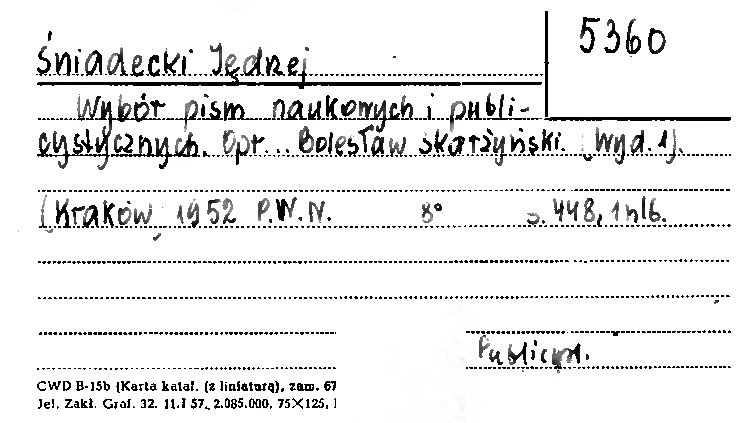 5360
Śniadecki Jędrzej
Wybór pism naukowych i publi-
cystycznych. Opr... Bolesław Skarżyński. (Wyd. 1).
(Kraków) 1952 P.W.N. 8° s. 448, 1 nlb.
CWD B-15b (Karta katal. (z liniaturą), zam. 67
Jel. Zakł. Graf. 32. 11.I 57. 2.085.000, 75×125,